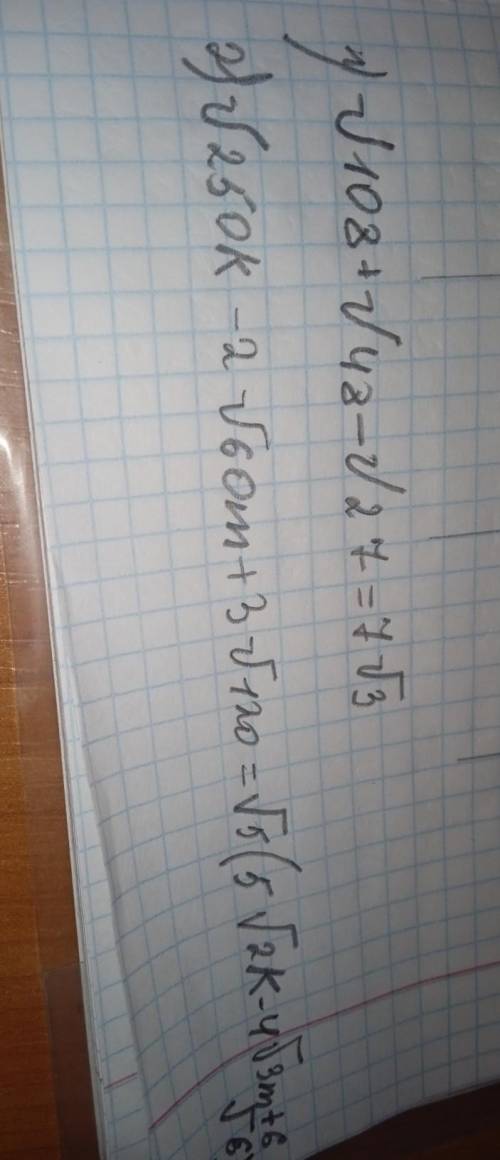 1) √108+√48-√27=7√3
2) √250k-2√60m+3√120=√5(5√2k-4√3m+6√6)